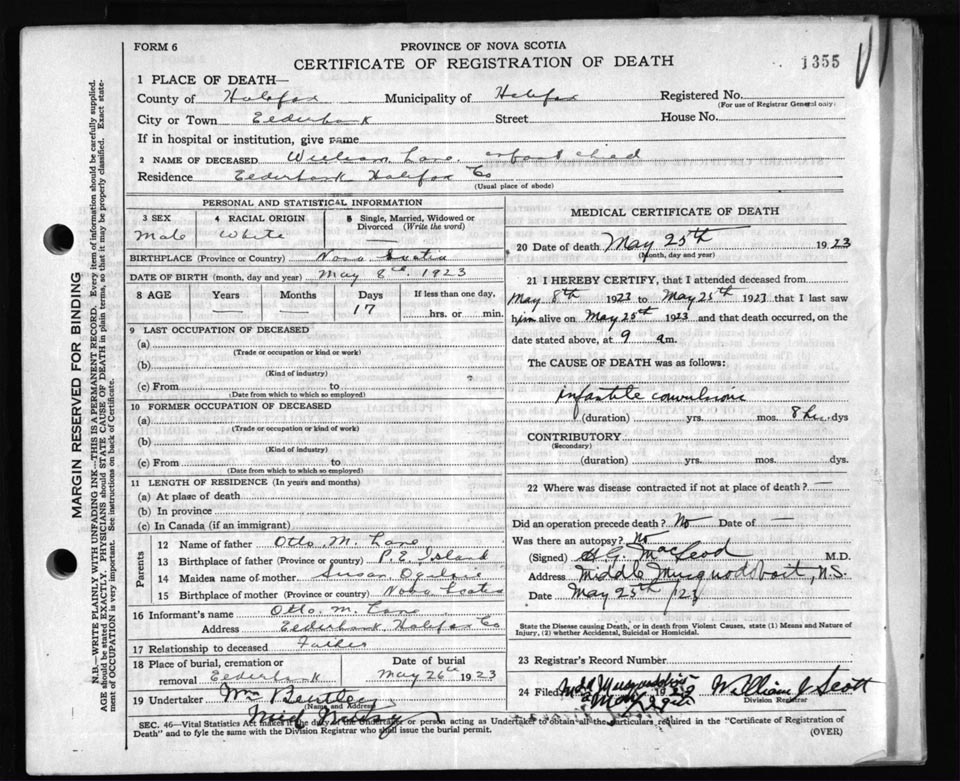 FORM 6
PROVINCE OF NOVA SCOTIA
CERTIFICATE OF REGISTRATION OF DEATH
1355
1 PLACE OF DEATH—
County of Halifax Municipality of Halifax Registered No.
(For use of Registrar General only)
City or Town Elderbank Street House No.
If in hospital or institution, give name
2 NAME OF DECEASED William Lane infant child
Residence Elderbank Halifax Co
(Usual place of abode)
PERSONAL AND STATISTICAL INFORMATION
3 SEX 4 RACIAL ORIGIN 5 Single, Married, Widowed or Divorced (Write the word)
Male White —
BIRTHPLACE (Province or Country) Nova Scotia
DATE OF BIRTH (month, day and year) May 8th, 1923
8 AGE Years Months Days If less than one day,
— — 17 hrs. or min.
9 LAST OCCUPATION OF DECEASED
(a)
(Trade or occupation or kind or work)
(b)
(Kind of industry)
(c) From to
(Date from which to which so employed)
10 FORMER OCCUPATION OF DECEASED
(a)
(Trade or occupation or kind of work)
(b)
(Kind of industry)
(c) From to
(Date from which to which so employed)
11 LENGTH OF RESIDENCE (In years and months)
(a) At place of death
(b) In province
(c) In Canada (if an immigrant)
Parents
12 Name of father Otto. M. Lane
13 Birthplace of father (Province or country) P. E. Island
14 Maiden name of mother Susan Ogilvie
15 Birthplace of mother (Province or country) Nova Scotia
16 Informant's name Otto. M. Lane
Address Elderbank, Halifax Co
17 Relationship to deceased Father
18 Place of burial, cremation or removal Elderbank
Date of burial May 26th 1923
19 Undertaker Wm Bentley
(Name and Address)
MEDICAL CERTIFICATE OF DEATH
20 Date of death May 25th 1923
(Month, day and year)
21 I HEREBY CERTIFY, that I attended deceased from
May 8th 1923 to May 25th 1923 that I last saw
him alive on May 25th 1923 and that death occurred, on the
date stated above, at 9 am.
The CAUSE OF DEATH was as follows:
infantile convulsions
(duration) yrs. mos. 8 hrs. dys
CONTRIBUTORY
(Secondary)
(duration) yrs. mos. dys.
22 Where was disease contracted if not at place of death? —
Did an operation precede death? No Date of —
Was there an autopsy? No
(Signed) MacLeod M.D.
Address Middle Musquodoboit, N.S.
Date May 25th /23
State the Disease causing Death, or in death from Violent Causes, state (1) Means and Nature of
Injury, (2) whether Accidental, Suicidal or Homicidal.
23 Registrar's Record Number
24 Filed William J Scott
Division Registrar
SEC. 46—Vital Statistics Act makes it the duty of the Undertaker or person acting as Undertaker to obtain all the particulars required in the "Certificate of Registration of
Death" and to fyle the same with the Division Registrar who shall issue the burial permit.
(OVER)
MARGIN RESERVED FOR BINDING
N.B.—WRITE PLAINLY WITH UNFADING INK—THIS IS A PERMANENT RECORD. Every item of information should be carefully supplied.
AGE should be stated EXACTLY. PHYSICIANS should STATE CAUSE OF DEATH in plain terms, that it may be properly classified. Exact state-
ment of OCCUPATION is very important. See instructions on back of Certificate.